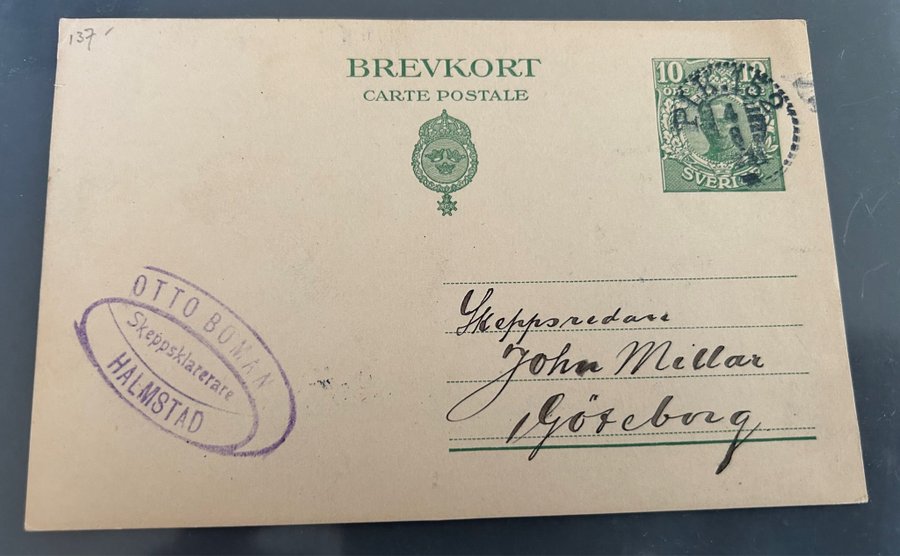 137
BREVKORT
CARTE POSTALE
10 10
ÖRE
SVERIGE
PLK. 158
4
OTTO BOMAN
Skeppsklarerare
HALMSTAD
Skeppsredare
John Millar
Göteborg